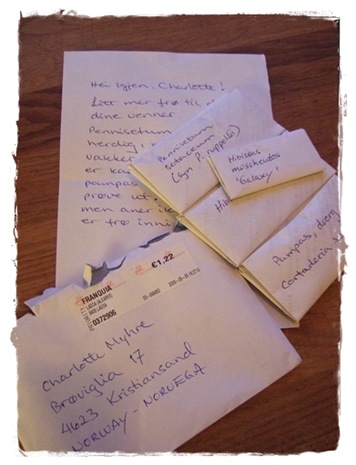 Hei igjen, Charlotte!
Litt mer frø til
dine venner.
Pennisetum
herdig,
vakker
er
pampas
prøve
men aner
er frø inni
Pennisetum
setaceum
(syn P. ruppelii)
Hibiscus
moscheutos
'Galaxy'
Hib
Pampas,
Cortaderia
FRANQUIA
€1.22
0372906
Charlotte Myhre
Brøviglia 17
4623 Kristiansand
NORWAY - NORUEGA